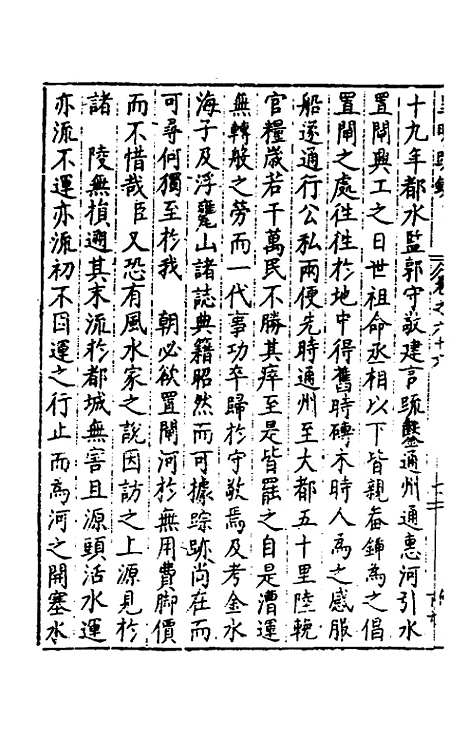 十九年都水監郭守敬建言疏鑿通州通惠河引水
置閘興工之日世祖命丞相以下皆親畚鍤為之倡
置閘之處徃徃於地中得舊時磚木時人為之感服
船遂通行公私兩便先時通州至大都五十里陸輓
官糧歲若干萬民不勝其瘁至是皆罷之自是漕運
無轉般之勞而一代事功卒歸於守敬焉及考金水
海子及浮甕山諸誌典籍昭然而可據踪跡尚在而
可尋何獨至於我 朝必欲置閘河於無用費脚價
而不惜哉臣又恐有風水家之說因訪之上源見於
諸 陵無槓遡其末流於都城無害且源頭活水運
亦流不運亦流初不因運之行止而為河之開塞水